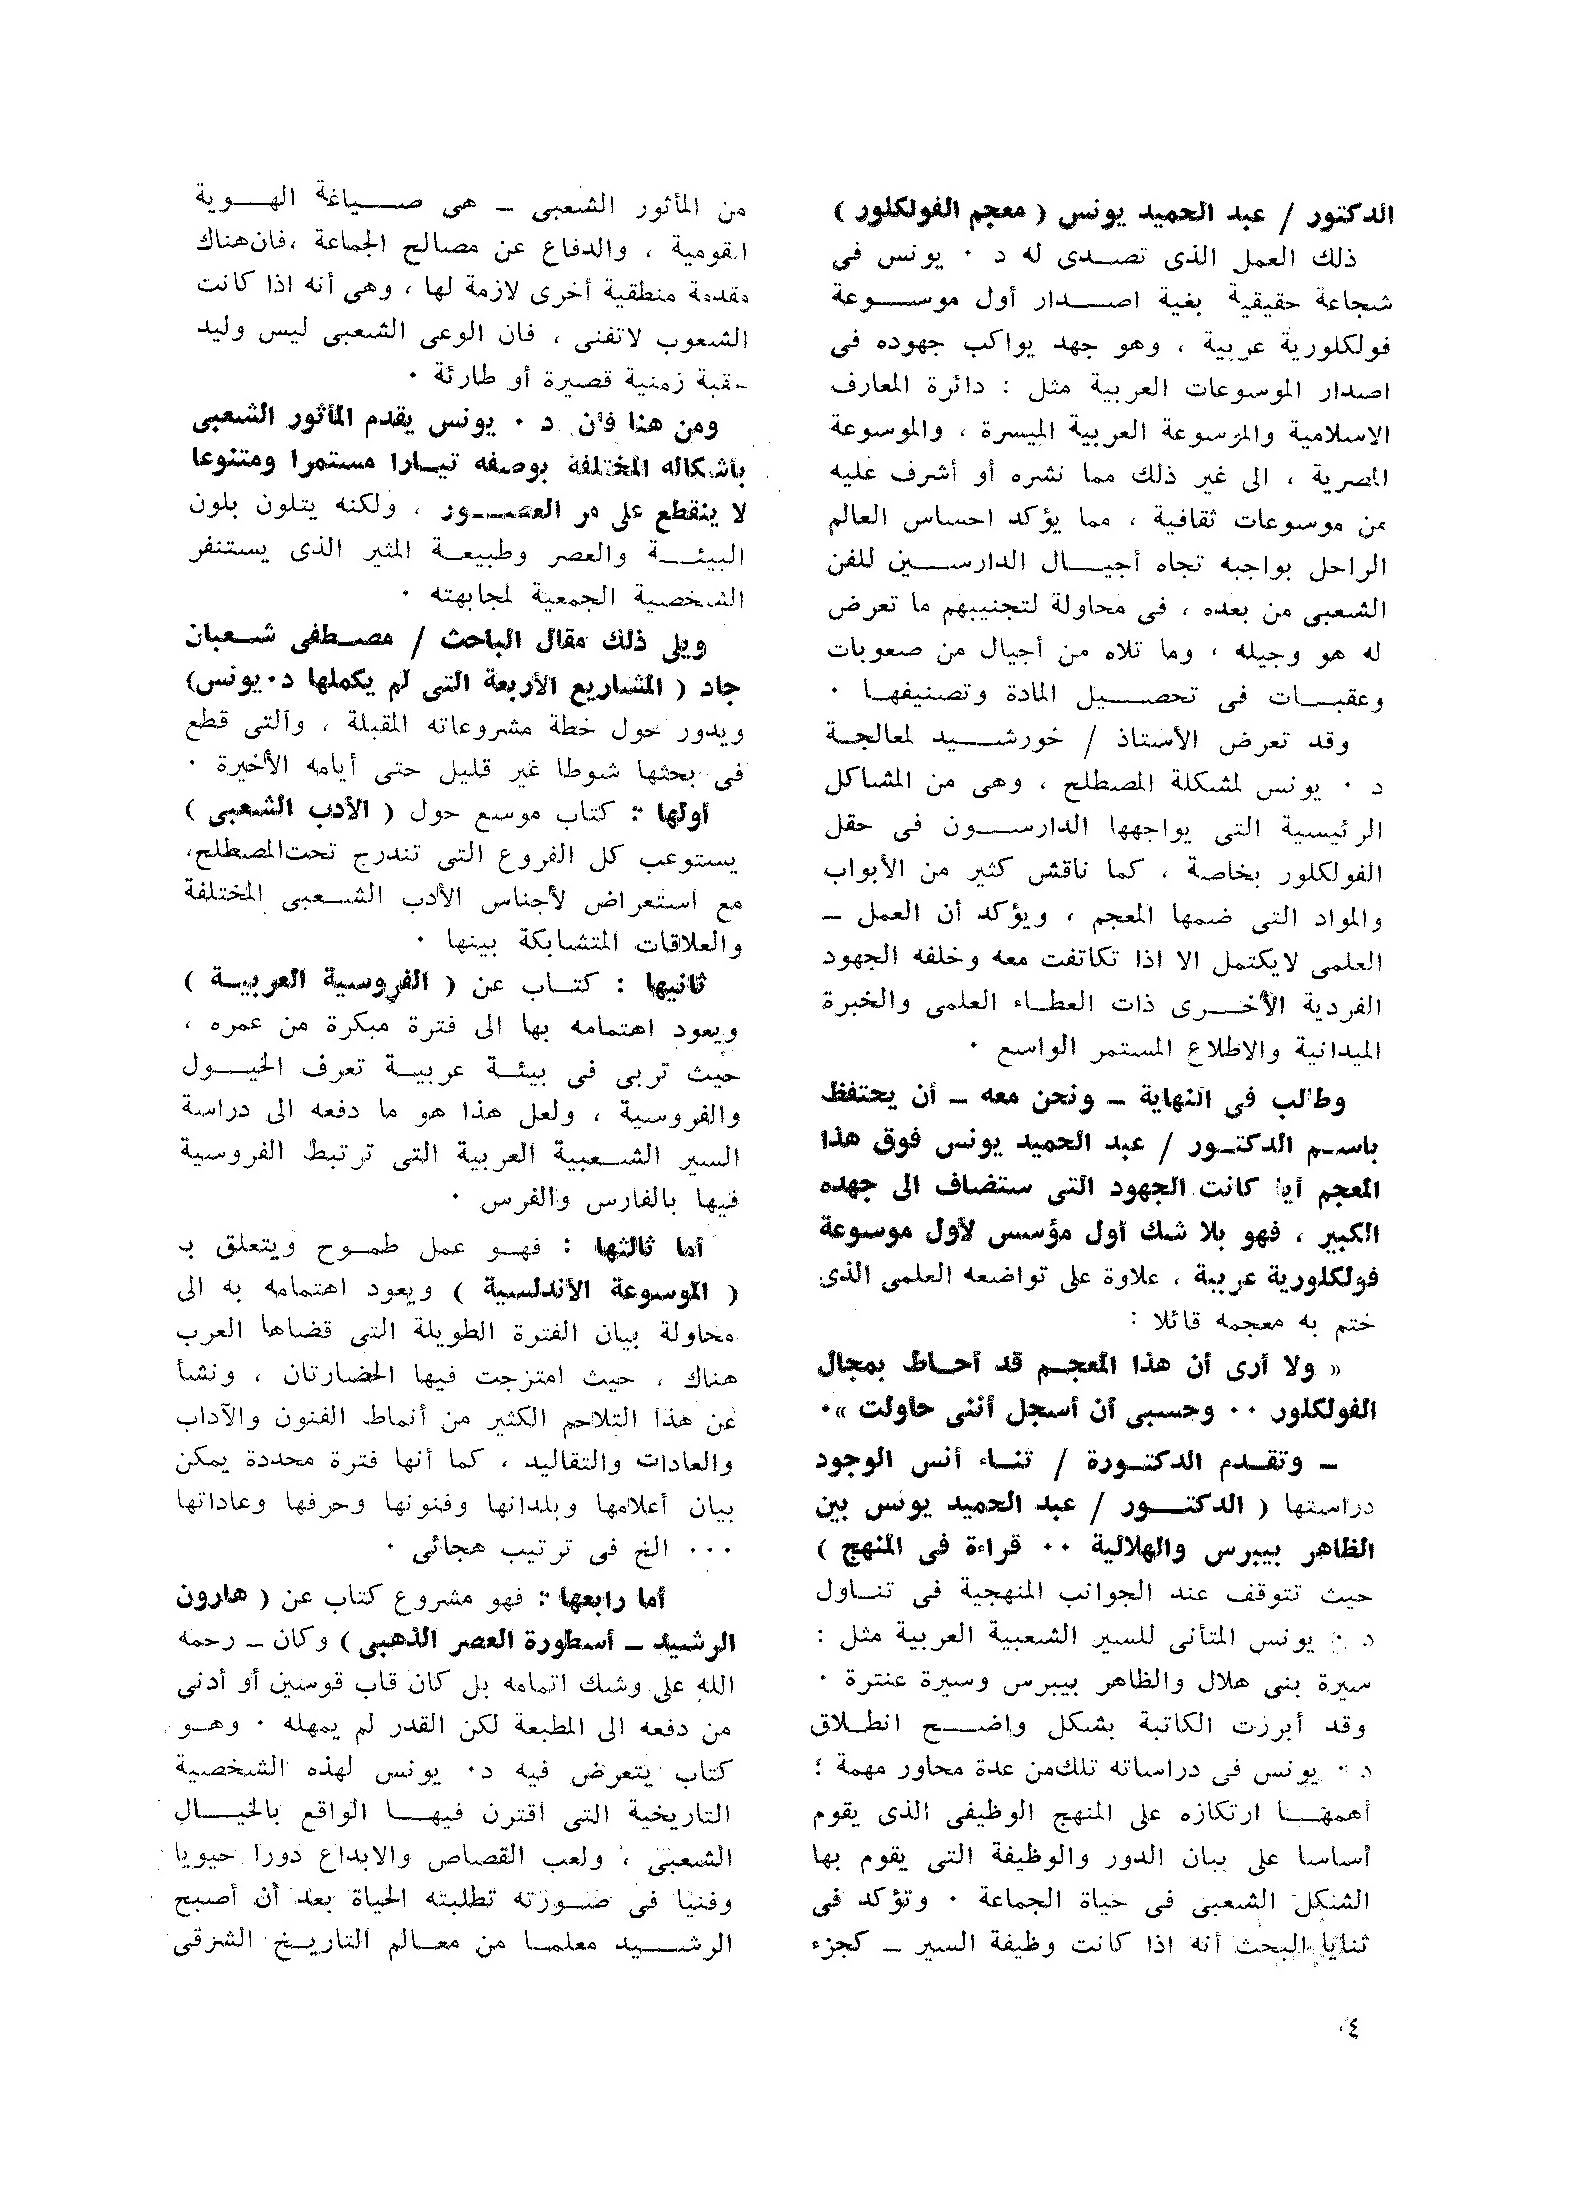 الدكتور / عبد الحميد يونس ( معجم الفولكلور )
ذلك العمل الذى تصدى له د ٠ يونس فى
شجاعة حقيقية بغية اصدار أول موسوعة
فولكلورية عربية ، وهو جهد يواكب جهوده فى
اصدار الموسوعات العربية مثل : دائرة المعارف
الاسلامية والموسوعة العربية الميسرة ، والموسوعة
المصرية ، الى غير ذلك مما نشره أو أشرف عليه
من موسوعات ثقافية ، مما يؤكد احساس العالم
الراحل بواجبه تجاه أجيال الدارسين للفن
الشعبى من بعده ، فى محاولة لتجنيبهم ما تعرض
له هو وجيله ، وما تلاه من أجيال من صعوبات
وعقبات فى تحصيل المادة وتصنيفها ٠
وقد تعرض الأستاذ / خورشيد لمعالجة
د ٠ يونس لمشكلة المصطلح ، وهى من المشاكل
الرئيسية التى يواجهها الدارسون فى حقل
الفولكلور بخاصة ، كما ناقش كثير من الأبواب
والمواد التى ضمها المعجم ، ويؤكد أن العمل –
العلمى لايكتمل الا اذا تكاتفت معه وخلفه الجهود
الفردية الأخرى ذات العطاء العلمى والخبرة
الميدانية والاطلاع المستمر الواسع ٠
وطالب فى النهاية – ونحن معه – أن يحتفظ
باسم الدكتور / عبد الحميد يونس فوق هذا
المعجم أيا كانت الجهود التى ستضاف الى جهده
الكبير ، فهو بلا شك أول مؤسس لأول موسوعة
فولكلورية عربية ، علاوة على تواضعه العلمى الذى
ختم به معجمه قائلا :
« ولا أرى أن هذا المعجم قد أحاط بمجال
الفولكلور ٠٠ وحسبى أن أسجل أننى حاولت »٠
– وتقدم الدكتورة / ثناء أنس الوجود
دراستها ( الدكتور / عبد الحميد يونس بين
الظاهر بيبرس والهلالية ٠٠ قراءة فى المنهج )
حيث تتوقف عند الجوانب المنهجية فى تناول
د ٠ يونس المتأنى للسير الشعبية العربية مثل :
سيرة بنى هلال والظاهر بيبرس وسيرة عنترة ٠
وقد أبرزت الكاتبة بشكل واضح انطلاق
د ٠ يونس فى دراساته تلك من عدة محاور مهمة ؛
أهمها ارتكازه على المنهج الوظيفى الذى يقوم
أساسا على بيان الدور والوظيفة التى يقوم بها
الشكل الشعبى فى حياة الجماعة ٠ وتؤكد فى
ثنايا البحث أنه اذا كانت وظيفة السير – كجزء
من المأثور الشعبى – هى صياغة الهوية
القومية ، والدفاع عن مصالح الجماعة ،فان هناك
مقدمة منطقية أخرى لازمة لها ، وهى أنه اذا كانت
الشعوب لاتفنى ، فان الوعى الشعبى ليس وليد
حقبة زمنية قصيرة أو طارئة ٠
ومن هنا فان د ٠ يونس يقدم المأثور الشعبى
بأشكاله المختلفة بوصفه تيارا مستمرا ومتنوعا
لا ينقطع على مر العصور ، ولكنه يتلون بلون
البيئة والعصر وطبيعة المثير الذى يستنفر
الشخصية الجمعية لمجابهته ٠
ويلى ذلك مقال الباحث / مصطفى شعبان
جاد ( المشاريع الأربعة التى لم يكملها د٠يونس)
ويدور حول خطة مشروعاته المقبلة ، والتى قطع
فى بحثها شوطا غير قليل حتى أيامه الأخيرة ٠
أولها : كتاب موسع حول ( الأدب الشعبى )
يستوعب كل الفروع التى تندرج تحت المصطلح،
مع استعراض لأجناس الأدب الشعبى المختلفة
والعلاقات المتشابكة بينها ٠
ثانيها : كتاب عن ( الفروسية العربية )
ويعود اهتمامه بها الى فترة مبكرة من عمره ،
حيث تربى فى بيئة عربية تعرف الخيول
والفروسية ، ولعل هذا هو ما دفعه الى دراسة
السير الشعبية العربية التى ترتبط الفروسية
فيها بالفارس والفرس ٠
أما ثالثها : فهو عمل طموح ويتعلق بـ
( الموسوعة الأندلسية ) ويعود اهتمامه به الى
محاولة بيان الفترة الطويلة التى قضاها العرب
هناك ، حيث امتزجت فيها الحضارتان ، ونشأ
عن هذا التلاحم الكثير من أنماط الفنون والآداب
والعادات والتقاليد ، كما أنها فترة محددة يمكن
بيان أعلامها وبلدانها وفنونها وحرفها وعاداتها
٠٠٠ الخ فى ترتيب هجائى ٠
أما رابعها : فهو مشروع كتاب عن ( هارون
الرشيد – أسطورة العصر الذهبى ) وكان – رحمه
الله على وشك اتمامه بل كان قاب قوسين أو أدنى
من دفعه الى المطبعة لكن القدر لم يمهله ٠ وهو
كتاب يتعرض فيه د٠ يونس لهذه الشخصية
التاريخية التى اقترن فيها الواقع بالخيال
الشعبى ، ولعب القصاص والابداع دورا حيويا
وفنيا فى صورته تطلبته الحياة بعد أن أصبح
الرشيد معلما من معالم التاريخ الشرقى
٤